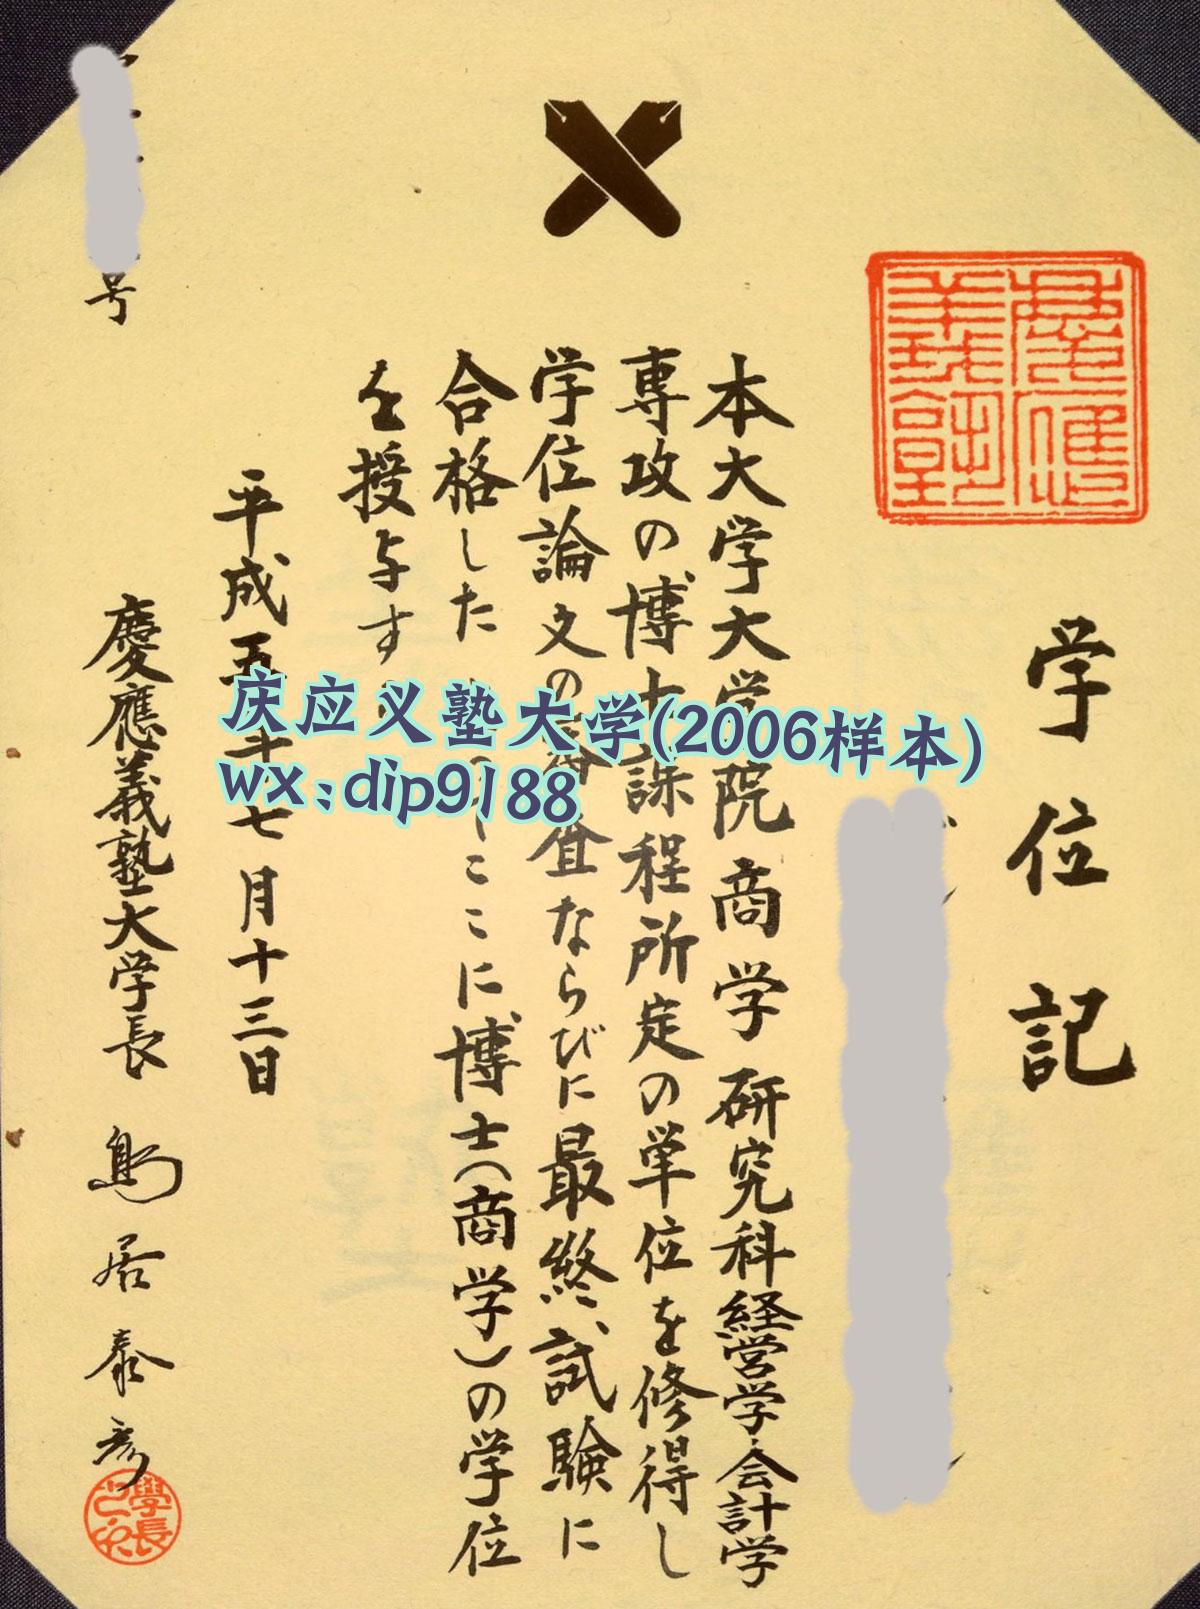 学位記
慶應義塾
本大学大学院商学研究科経営学会計学
専攻の博士課程所定の単位を修得し
学位論文の審査ならびに最終試験に
合格した ここに博士(商学)の学位
を授与する
平成五年七月十三日
慶應義塾大学長 鳥居泰彦
学長
号
庆应义塾大学(2006样本)
wx:dip9188